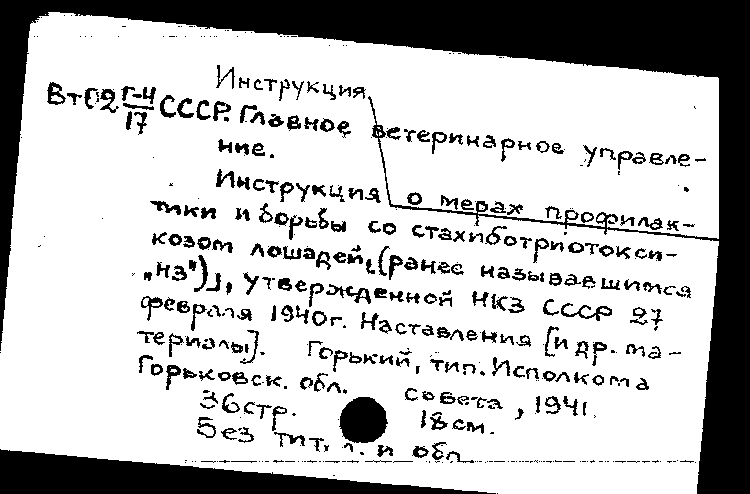 Инструкция
Вт02 Г-4/17 СССР. Главное ветеринарное управле-
ние.
Инструкция о мерах профилак-
тики и борьбы со стахиботриотокси-
козом лошадей, (ранее называвшимся
„НЗ"), утвержденной НКЗ СССР 27
февраля 1940г. Наставления [и др. ма-
териалы]. Горький, тип. Исполкома
Горьковск. обл. совета, 1941.
36стр. 18см.
Без тит. л. и обл.